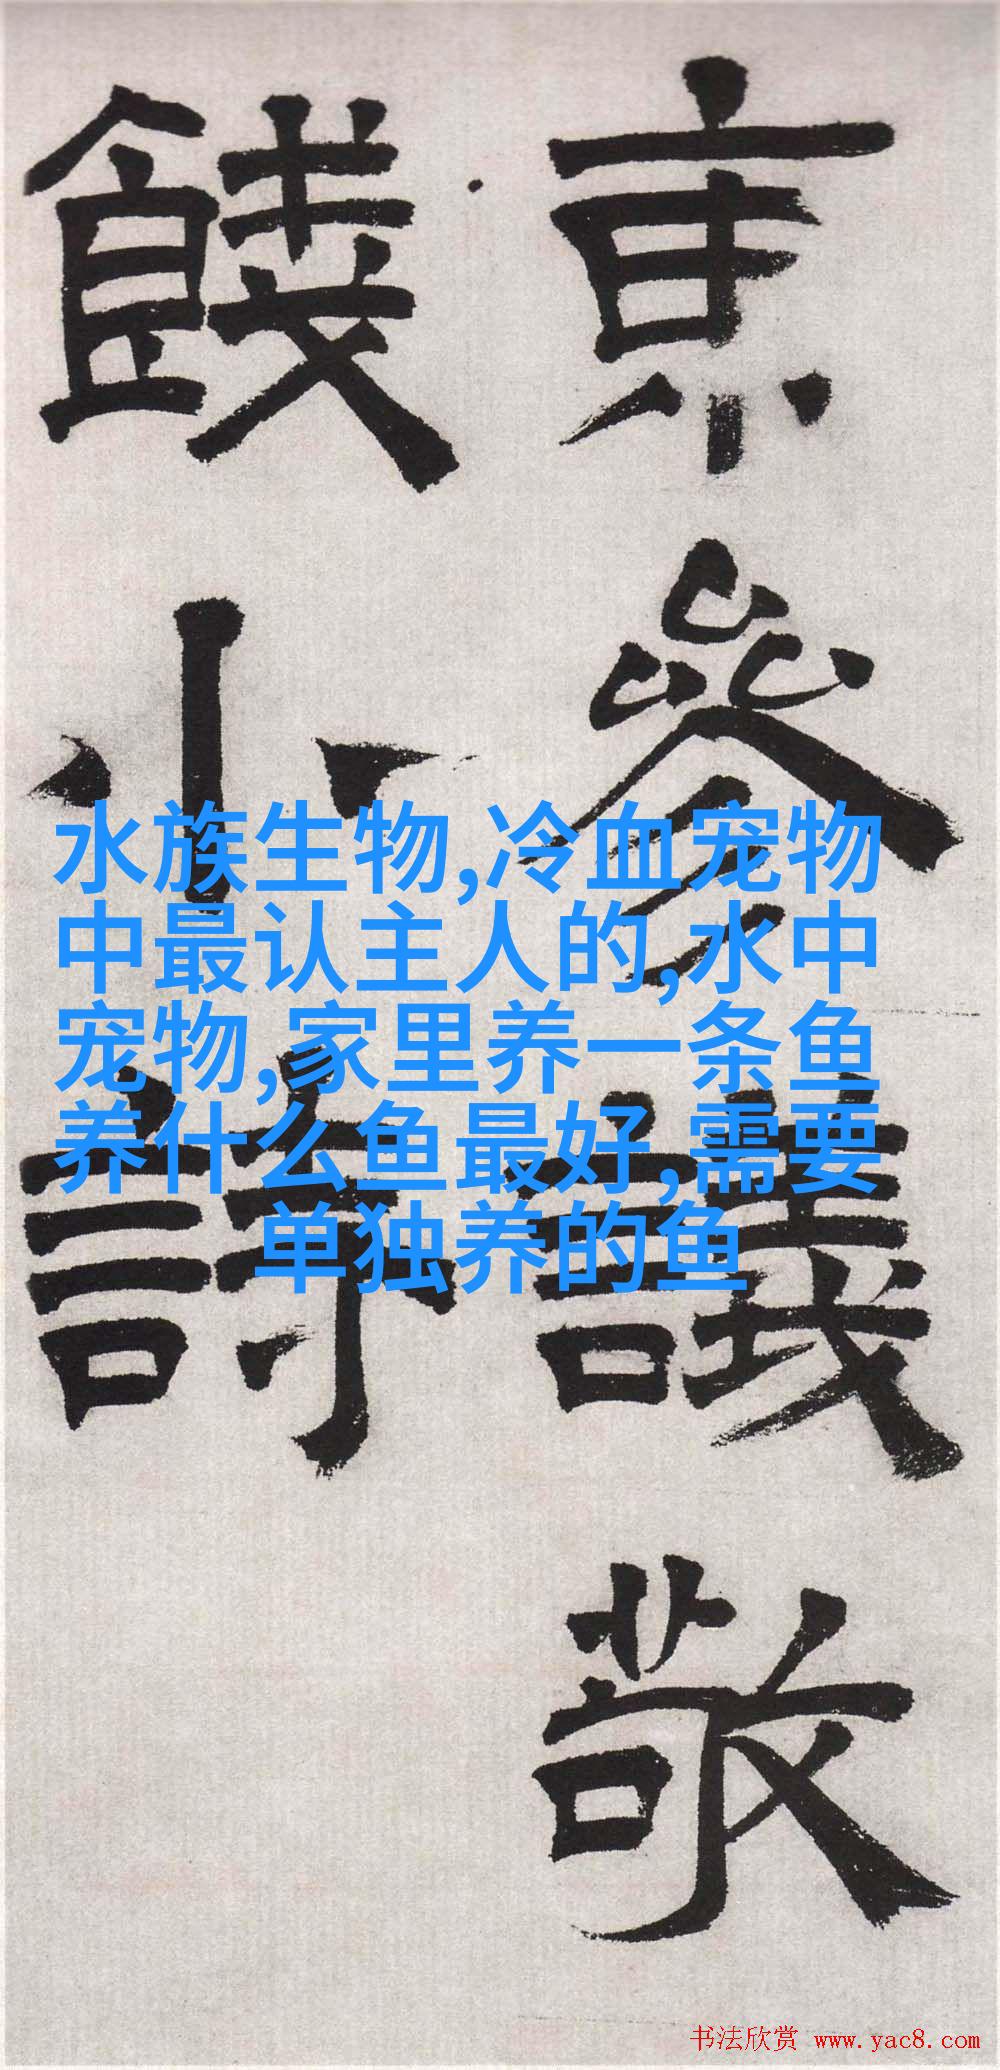 京參議敬
餞小詩
水族生物,冷血宠物
中最认主人的,水中
宠物,家里养一条鱼
养什么鱼最好,需要
单独养的鱼
书法欣赏 www.yac8.com